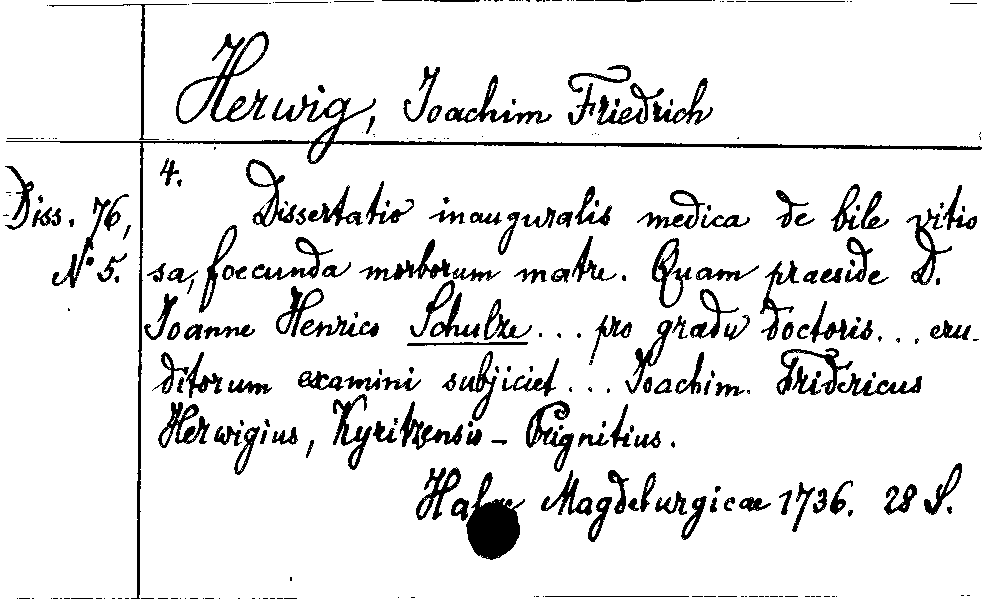 Herwig, Joachim Friedrich
4.
Diss. 76,
N° 5.
Dissertatio inauguralis medica de bile vitio
sa, foecunda morborum matre. Quam praeside D.
Joanne Henrico Schulze ... pro gradu doctoris ... eru-
ditorum examini subjiciet ... Joachim. Fridericus
Herwigius, Kyritzensis - Prignitius.
Halae Magdeburgicae 1736. 28 S.